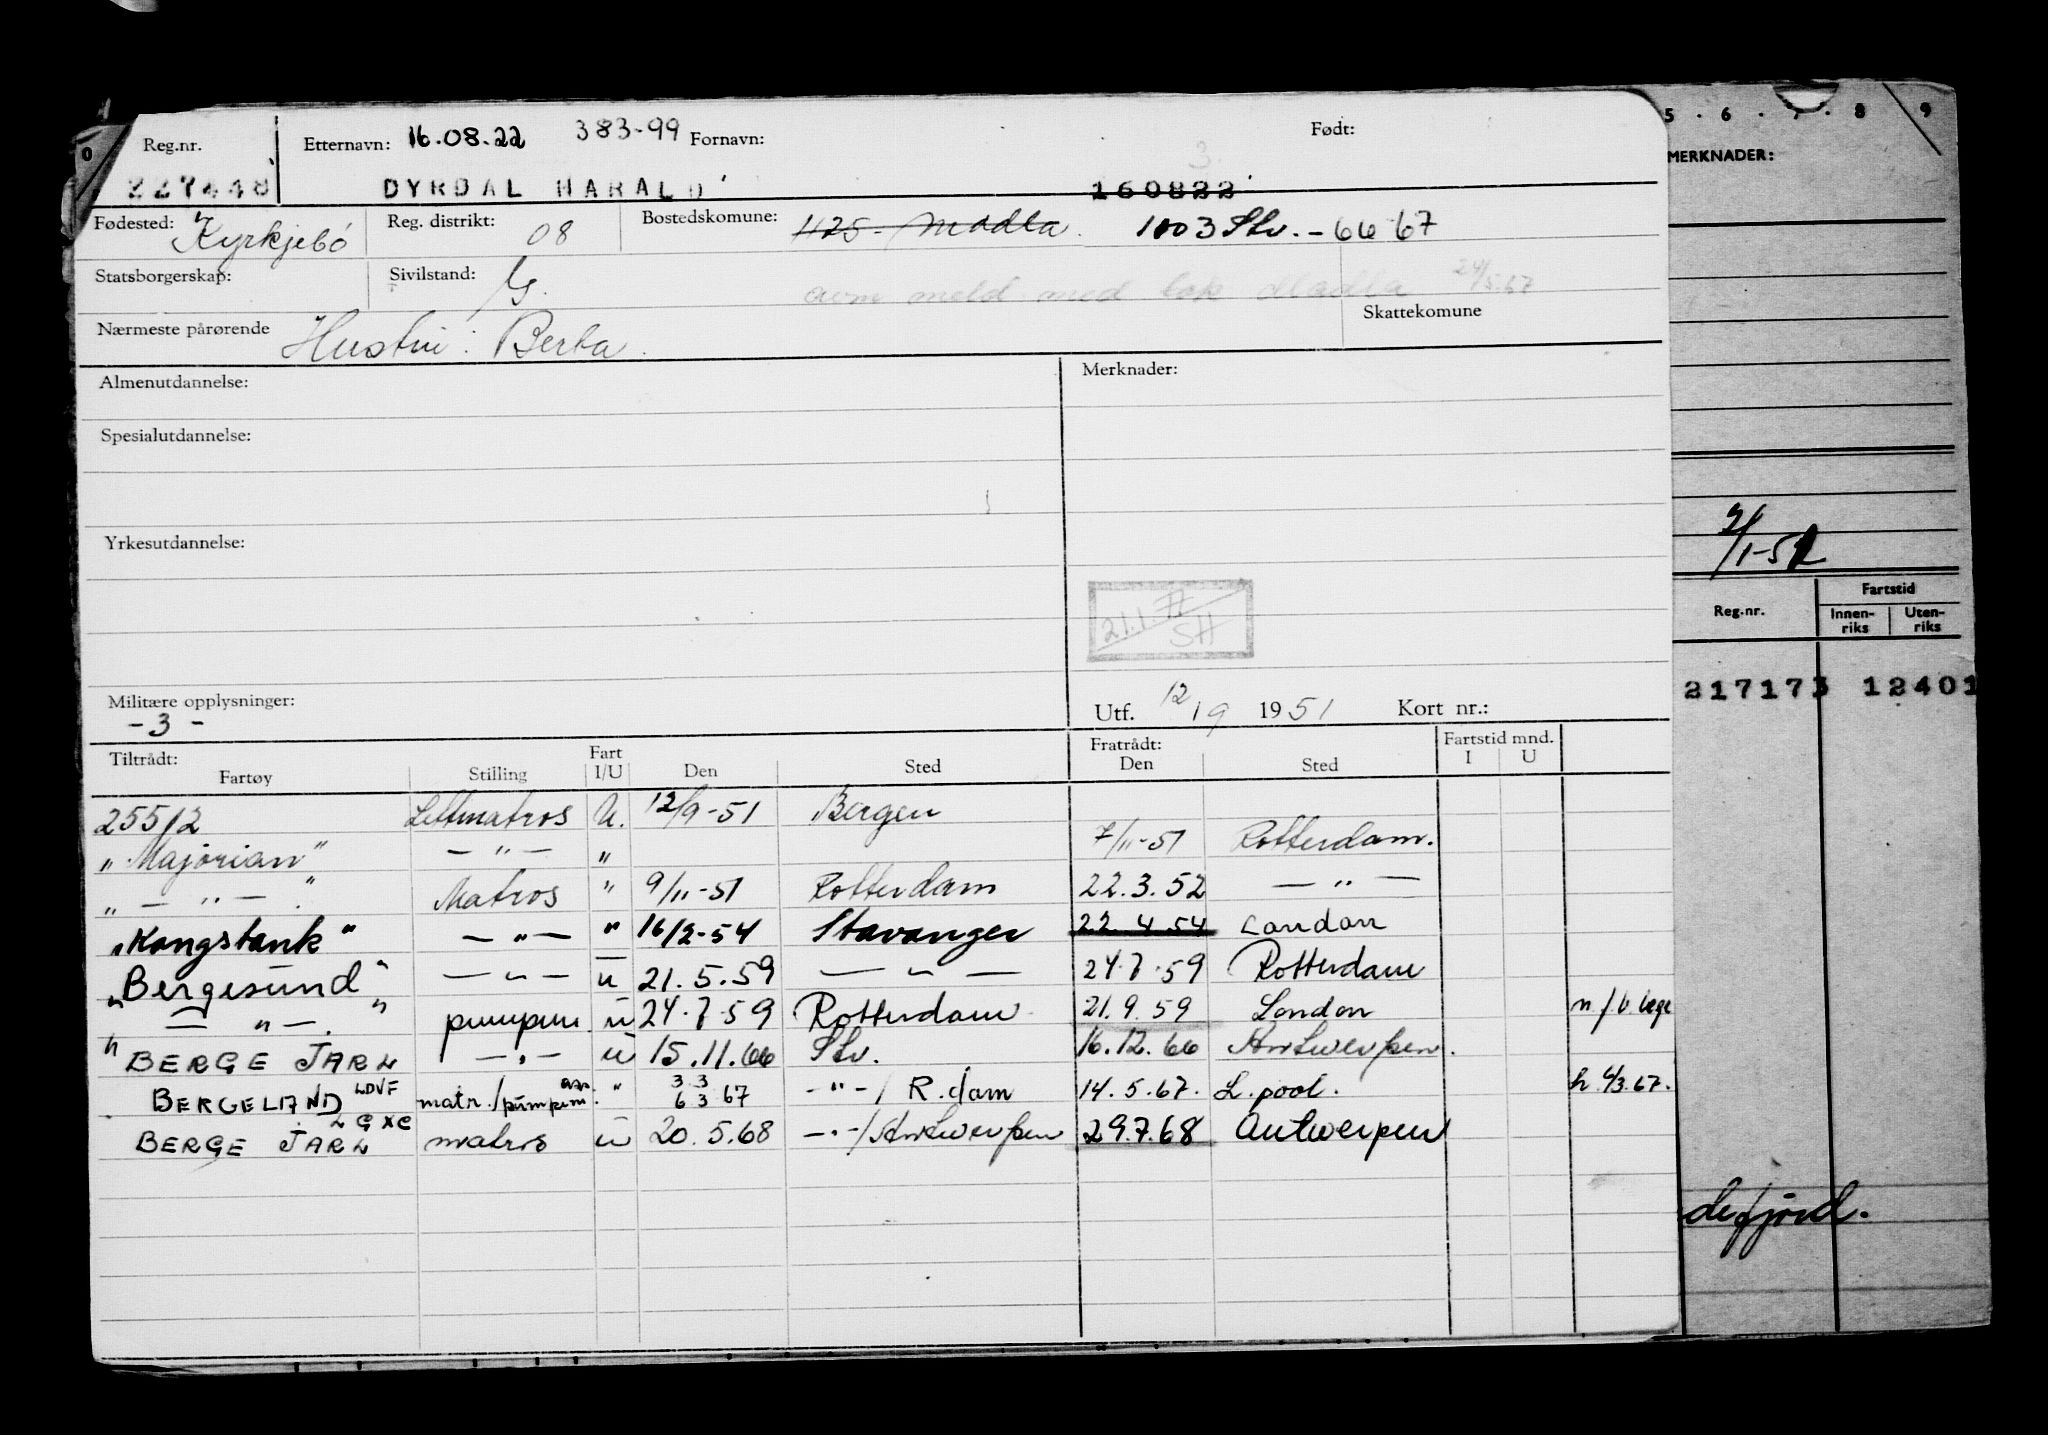 5 . 6 . 7 . 8 9
0 Reg.nr. Etternavn: 16.08.22 383-99 Fornavn: Født:
MERKNADER:
227448 DYRDAL HARALD 160822
Fødested: Kyrkjebó Reg. distrikt: 08 Bostedskomune: 1125 - Madla. 1103 Stv. - 66 67
Statsborgerskap: Sivilstand: G. meld. med Madla 24/5.67
Skattekomune
Nærmeste pårørende Hustru: Berta.
Almenutdannelse: Merknader:
Spesialutdannelse:
Yrkesutdannelse:
9/1-52
21.1 77 SH
Reg.nr. Fartstid
Innen-riks Uten-riks
217173 12401
Militære opplysninger:
- 3 -
Utf. 12/9 1951 Kort nr.:
Tiltrådt: Fart Fratrådt: Fartstid mnd.
Fartøy Stilling I/U Den Sted Den Sted I U
25512 Lettmatros U. 12/9-51 Bergen
"Majorian" — " — " 7/11-51 Rotterdam.
" — " — " Matros " 9/11-51 Rotterdam 22.3.52 — " —
"Kongstank" — " — " 16/2-54 Stavanger 22.4.54 London
"Bergesund" — " — u 21.5.59 — " — 24.7.59 Rotterdam
" — " — . " pumpem. u 24.7.59 Rotterdam 21.9.59 London n/b lege
" BERGE JARL — " — u 15.11.66 Stv. 16.12.66 Antwerpen.
BERGELAND LDVF matr./pumpem. ass. " 3.3 6.3 67 — " — / R.dam 14.5.67. L.pool. h 6/3.67.
BERGE JARL LGXC matros u 20.5.68 — " — / Antwerpen 29.7.68 Antwerpen
defjord.